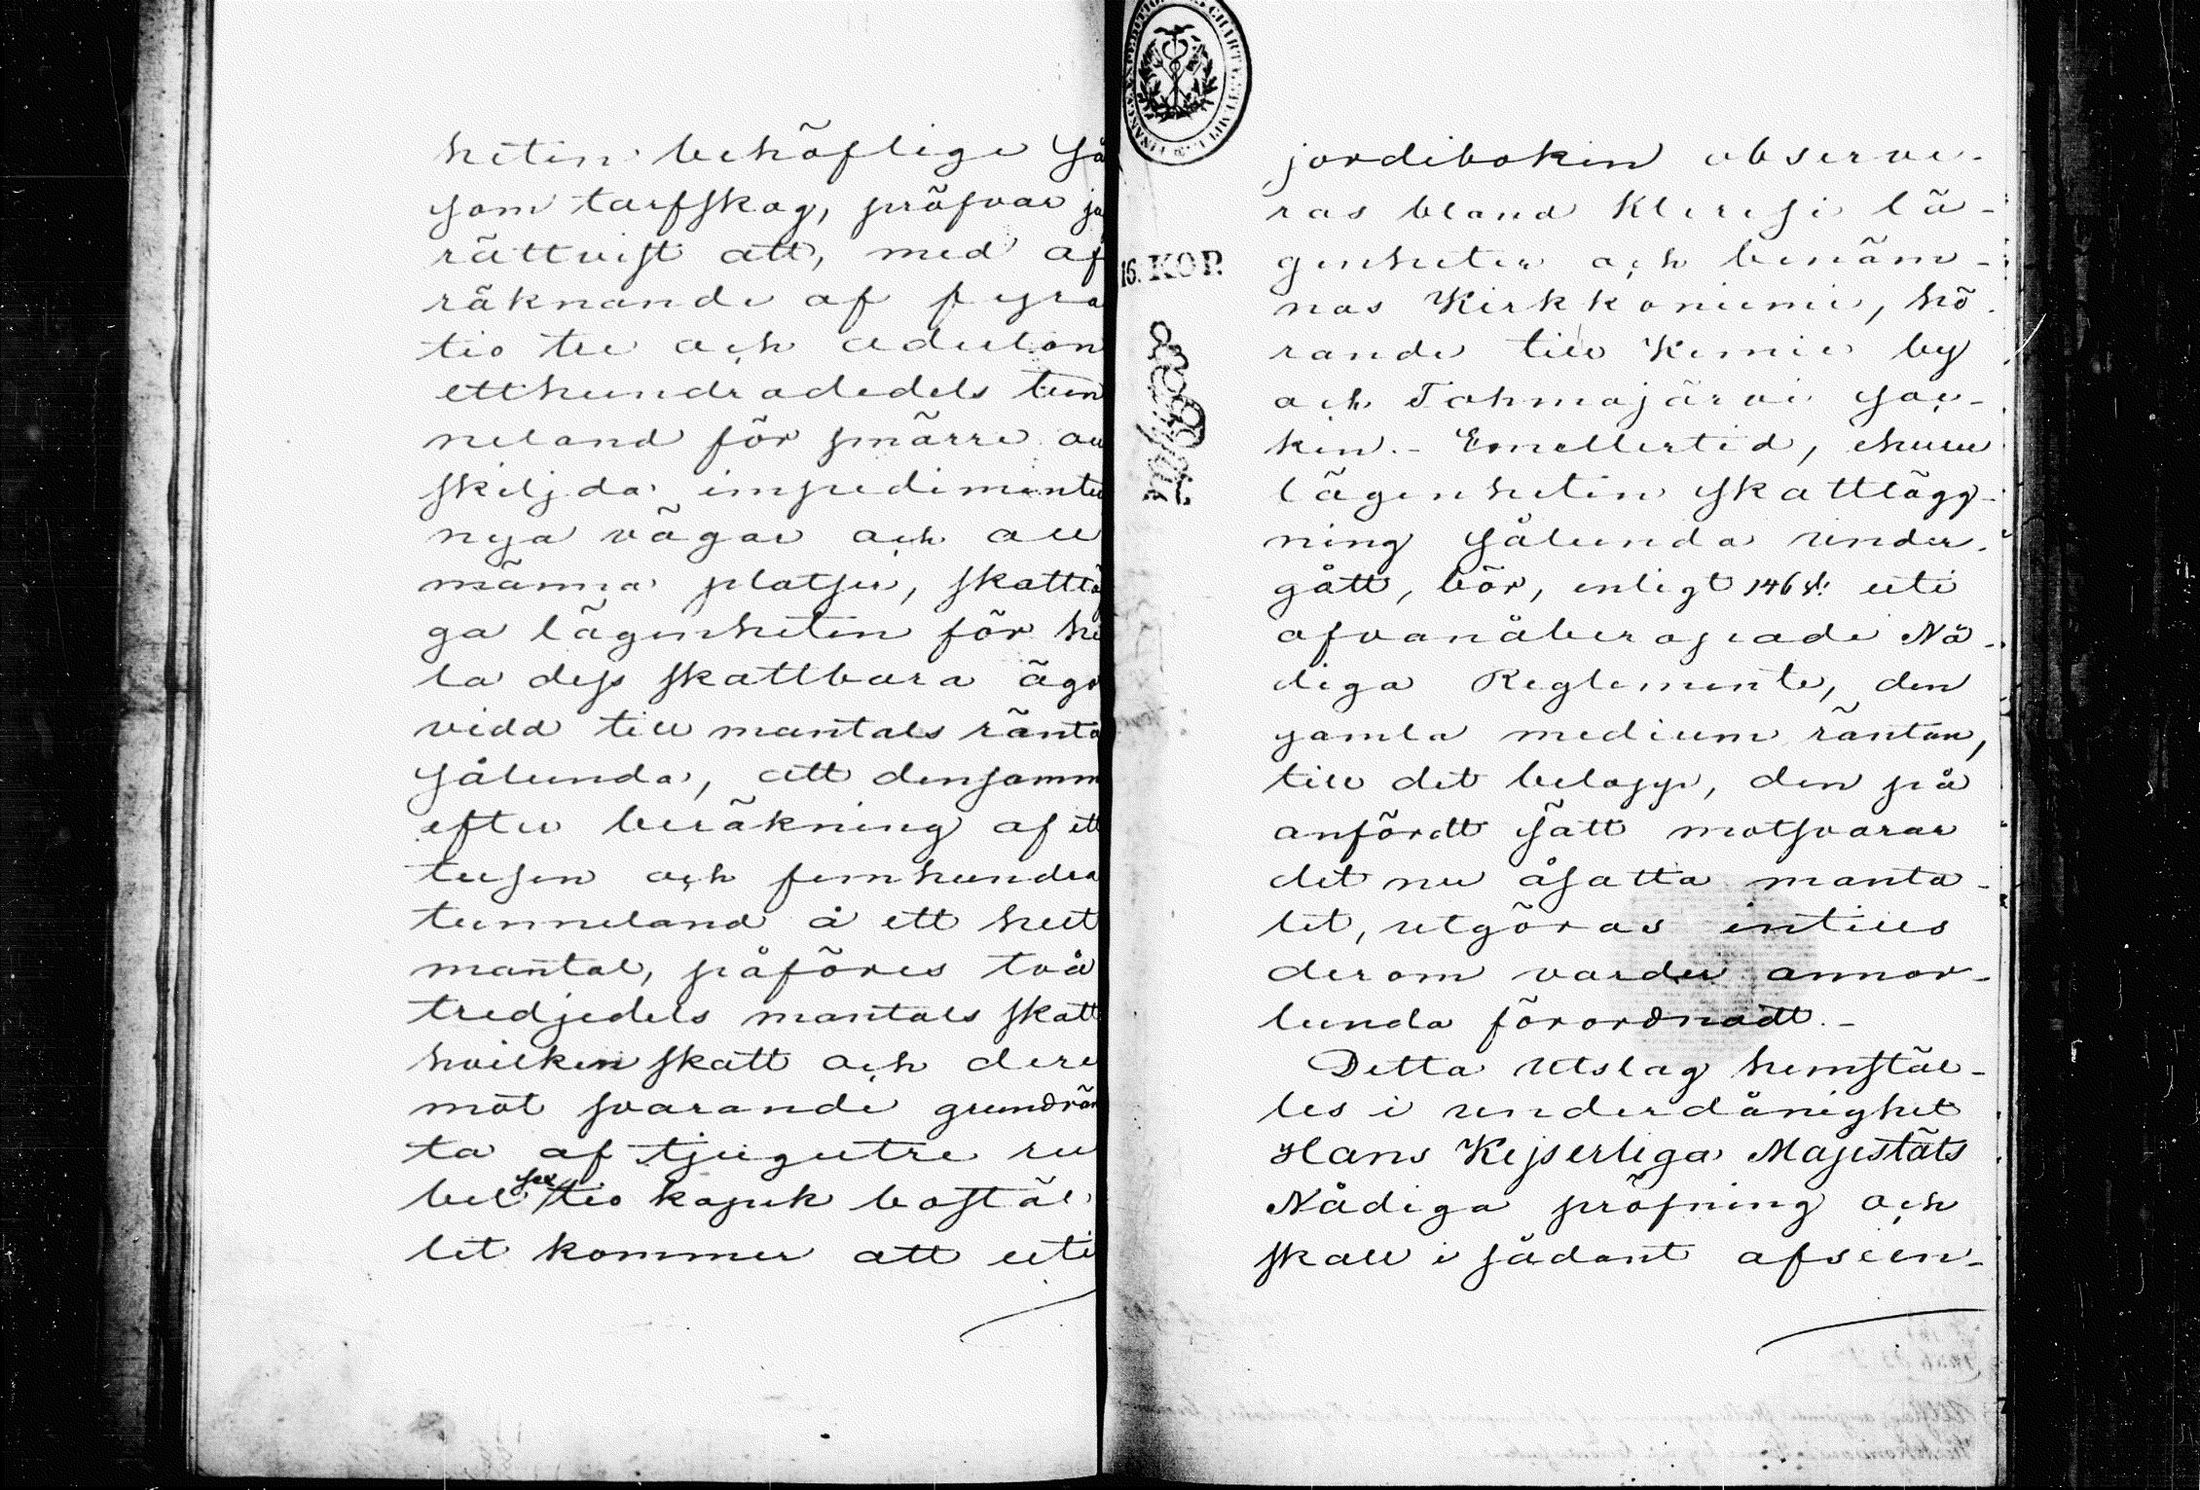 heten behöflige så
som tarfskog, pröfvar ja
rättvist att, med af
räknande af fyra
tio tre och aderton
etthundradedels tun
neland för smärre au
skiljda impedimenter
nya vägar och all
männa platser, skattläg
ga lägenheten för he
la dess skattbara ägo
vidd till mantals ränta
sålunda, att densamm
efter beräkning af ett
tusen och femhundra
tunneland å ett helt
mantal, påföres två
tredjedels mantals skatt
hvilken skatt och dere
mot svarande grundrän
ta af tjugutre ru
bel sextio kopek bostäl
let kommer att uti
16. KOP.
jordeboken observe-
ras bland Kleresi lä-
genheter och benäm-
nas Kirkkoniemi, hö
rande till Kemie by
och Tohmajärvi soc-
ken.- Emellertid, ehuru
lägenheten skattlägg-
ning sålunda under-
gått, bör, enligt 146 §: uti
ofvanåberopade Nå-
diga Reglemente, den
gamla medium räntan,
till det belopp, den på
anfördt sätt motsvarar
det nu åsatta manta-
let, utgöras intills
derom varder annor-
lunda förordnadt.-
Detta utslag hemstäl-
les i underdånighet
Hans Kejserliga Majestäts
Nådiga pröfning och
skall i sådant afseen-